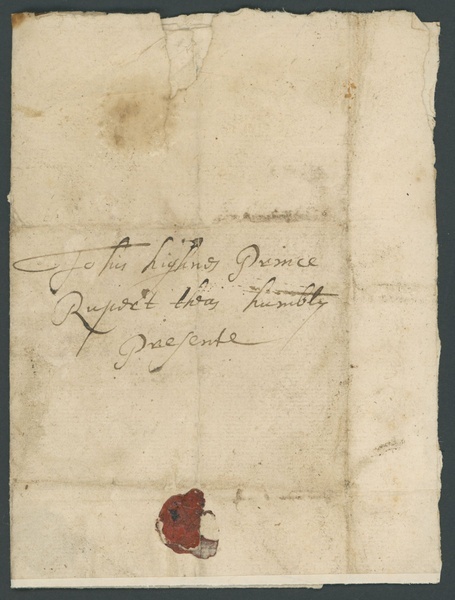 To his highnes Prince
Rupert thes humbly
Presente